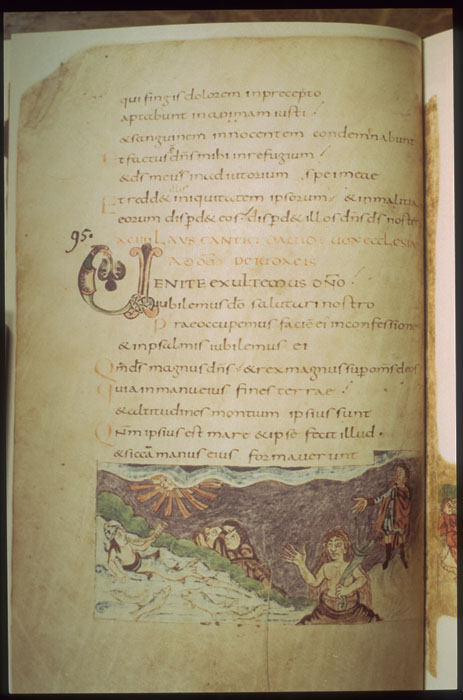 qui fingis dolorem inprecepto
aptabunt inanimam iusti
& sanguinem innocentem condemnabunt
Et factus dn̄s mihi inrefugium
& ds meus inadiutorium spei meae
Et redd& iniquitatem ipsorum & inmalitia
eorum disp&d& eos disp&d& illos dn̄s ds noster
LAUS CANTICI
95.
UENITE EXULTEMUS DNO
iubilemus dō salutari nostro
Praeoccupemus faciē ei inconfessione
& inpsalmis iubilemus ei
Qm̄ ds magnus dn̄s & rex magnus sup om̄s deos
Quia inmanu eius fines terrae
& altitudines montium ipsius sunt
Qnm̄ ipsius est mare & ipse fecit illud
& siccā manus eius formauerunt